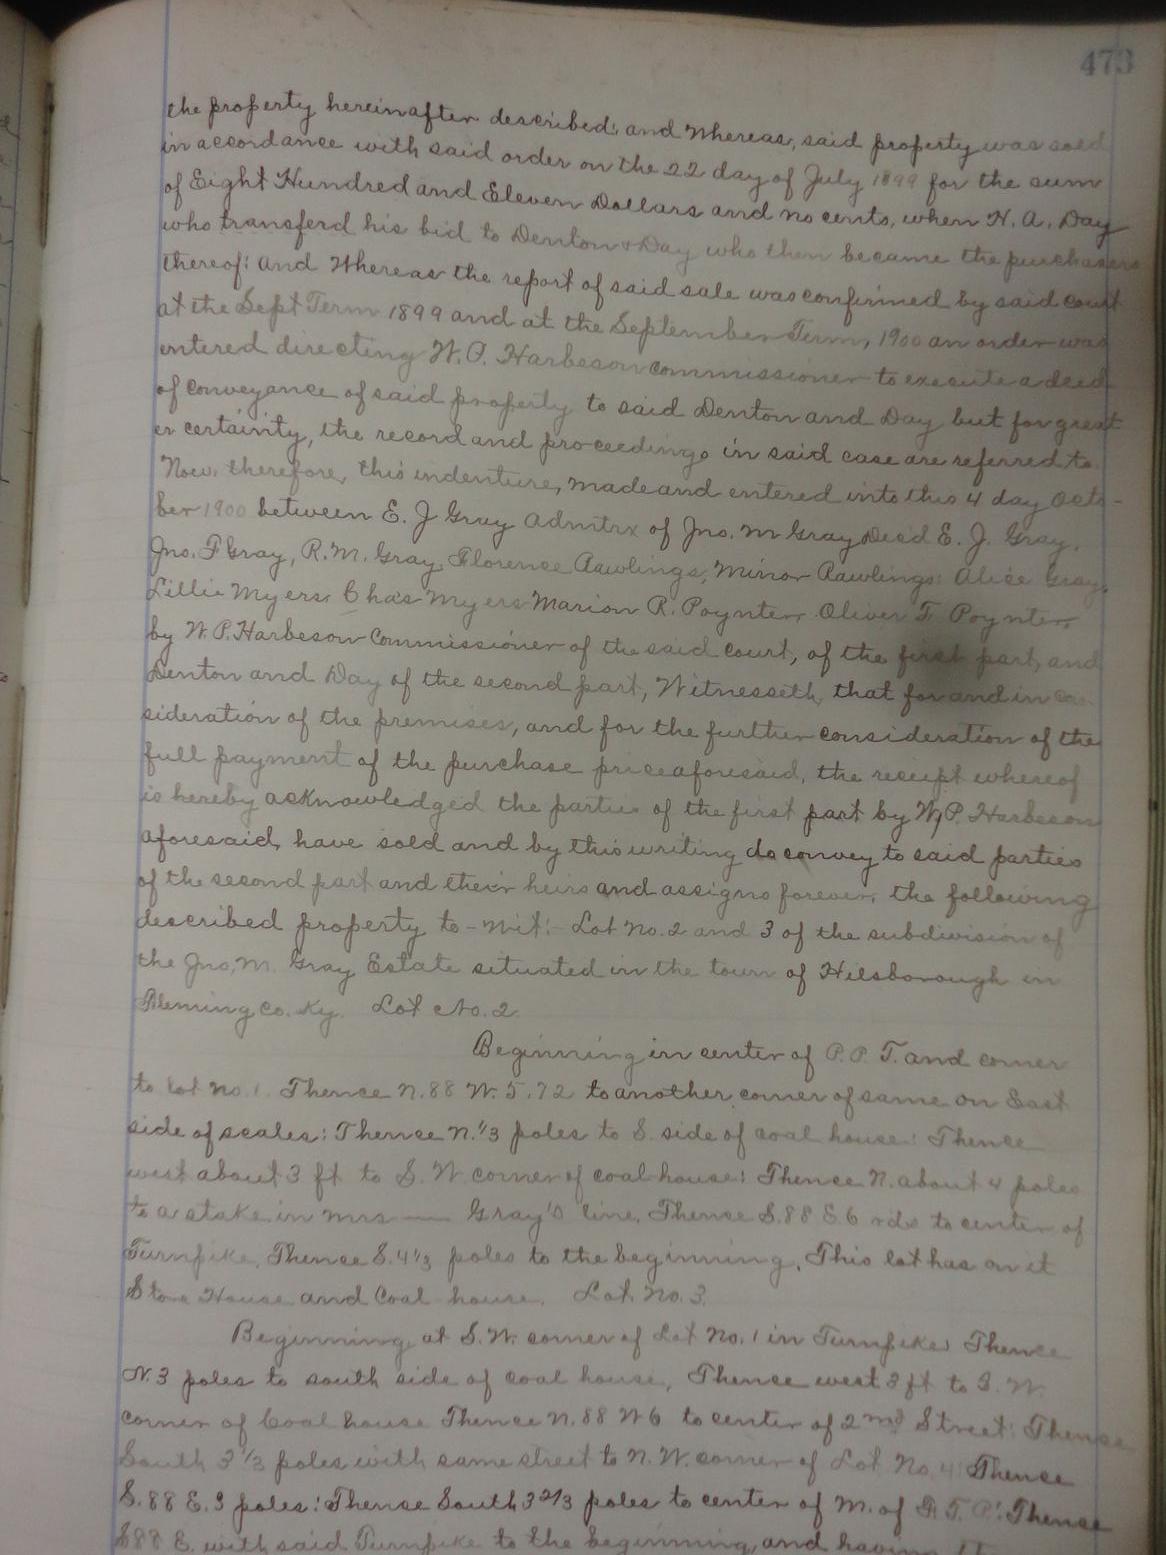 473
the property hereinafter described; and Whereas, said property was sold
in accordance with said order on the 22 day of July 1899 for the sum
of Eight Hundred and Eleven Dollars and no cents, when H. A. Day
who transferd his bid to Denton & Day who then became the purchasers
thereof: and Whereas the report of said sale was confirmed by said court
at the Sept Term 1899 and at the September Term, 1900 an order was
entered directing W. P. Harbeson commissioner to execute a deed
of conveyance of said property to said Denton and Day but for great
er certainty, the record and proceedings in said case are referred to.
Now, therefore, this indenture, made and entered into this 4 day Octo-
ber 1900 between E. J Gray Admtrx of Jno. M Gray Decd E. J. Gray,
Jno. F Gray, R. M. Gray, Florence Rawlings, Minor Rawlings: Alice Gray,
Lillie Myers Chas Myers Marion R. Poynter, Oliver F. Poynter,
by W. P. Harbeson Commissioner of the said court, of the first part, and
Denton and Day of the second part, Witnesseth, that for and in con-
sideration of the premises, and for the further consideration of the
full payment of the purchase price aforesaid, the receipt whereof
is hereby acknowledged the parties of the first part by W. P. Harbeson
aforesaid, have sold and by this writing do convey to said parties
of the second part and their heirs and assigns forever, the following
described property to-wit:- Lot No. 2 and 3 of the subdivision of
the Jno, M. Gray Estate situated in the town of Hilsborough in
Fleming Co. Ky. Lot No. 2
Beginning in center of P. P. T. and corner
to lot No. 1. Thence N. 88 W. 5.72 to another corner of same on East
side of scales: Thence N. 1/3 poles to S. side of coal house: Thence
west about 3 ft to S. W corner of coal house: Thence N. about 4 poles
to a stake in mrs —— Gray's line, Thence S. 88 E. 6 rds to center of
Turnpike, Thence S. 4 1/3 poles to the beginning, This lot has on it
Store House and Coal house. Lot No. 3.
Beginning at S. W. corner of Lot No. 1 in Turnpike: Thence
N. 3 poles to south side of coal house, Thence west 3 ft to S. W.
corner of Coal house Thence N. 88 W 6 to center of 2nd Street: Thence
South 3 1/3 poles with same street to N. W. corner of Lot No. 4: Thence
S. 88 E. 3 poles: Thence South 3 2/3 poles to center of M. of T. P.: Thence
S 88 E. with said Turnpike to the beginning, and having